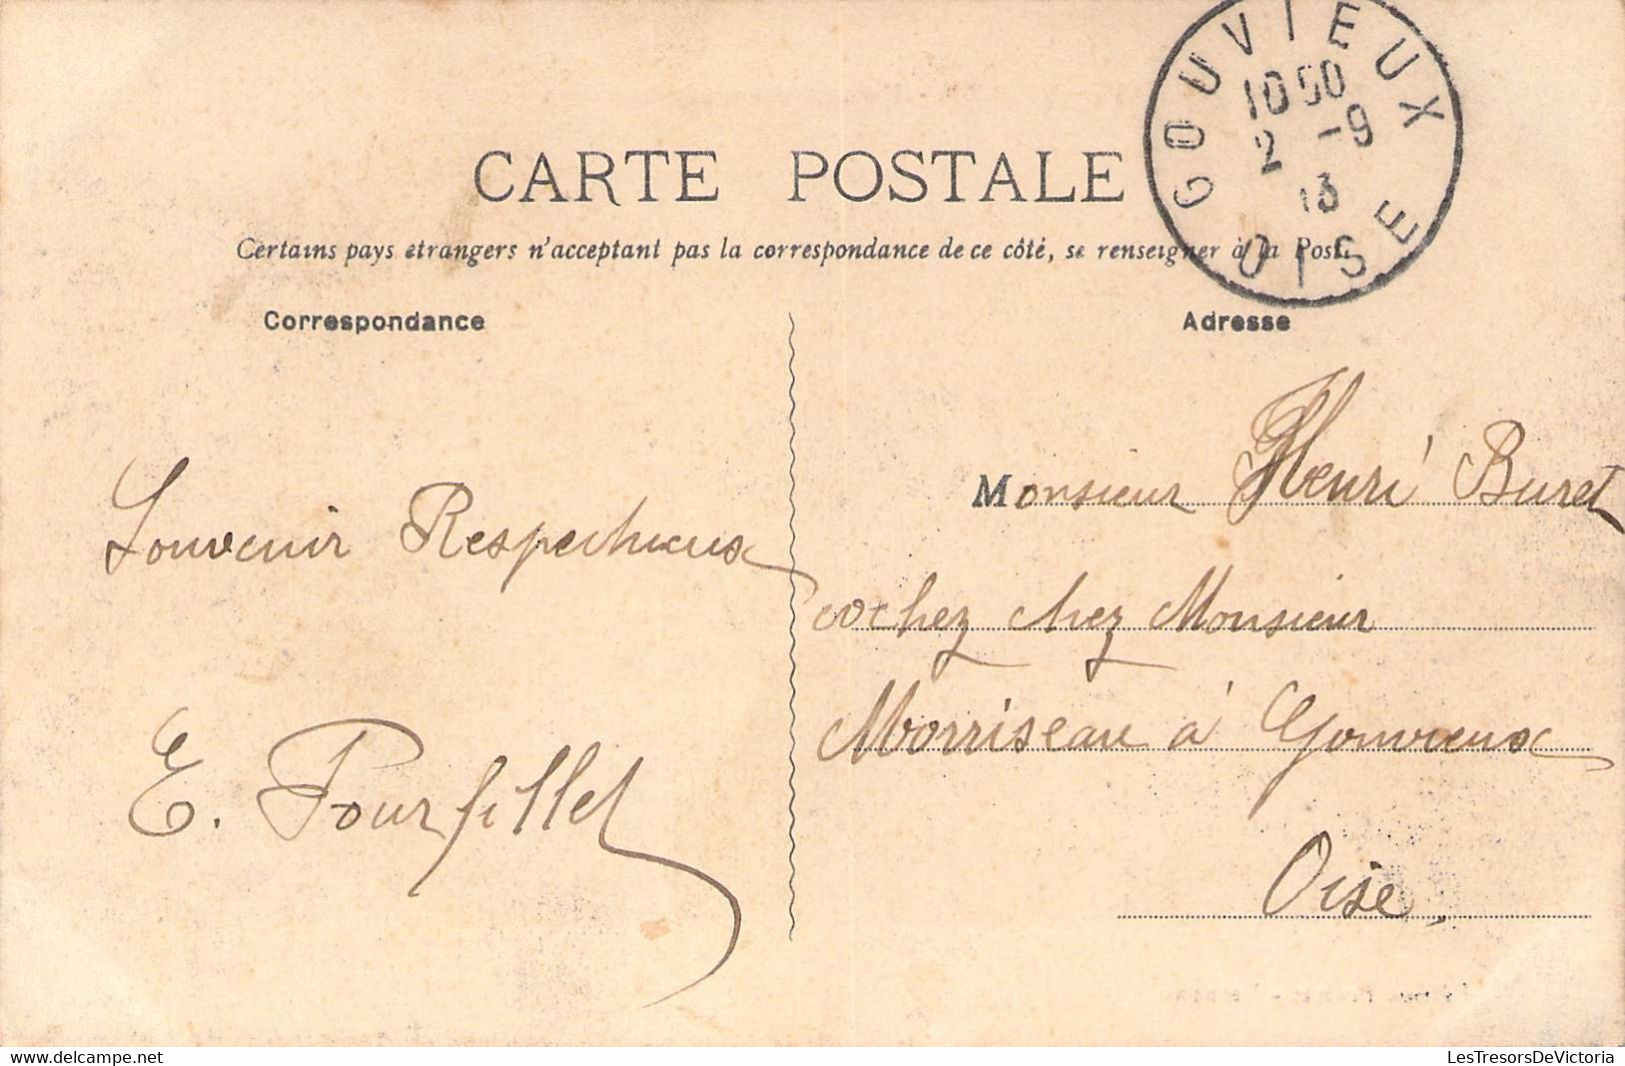 CARTE POSTALE
Certains pays etrangers n'acceptant pas la correspondance de ce côté, se renseigner à la Poste
GOUVIEUX
10 50
2 -9
13
OISE
Correspondance
Adresse
Souvenir Respectueux
E. Pourfillet
Monsieur Henri Buret
cochez chez Monsieur
Morriseau à Gouvieux
Oise
delcampe.net
LesTresorsDeVictoria